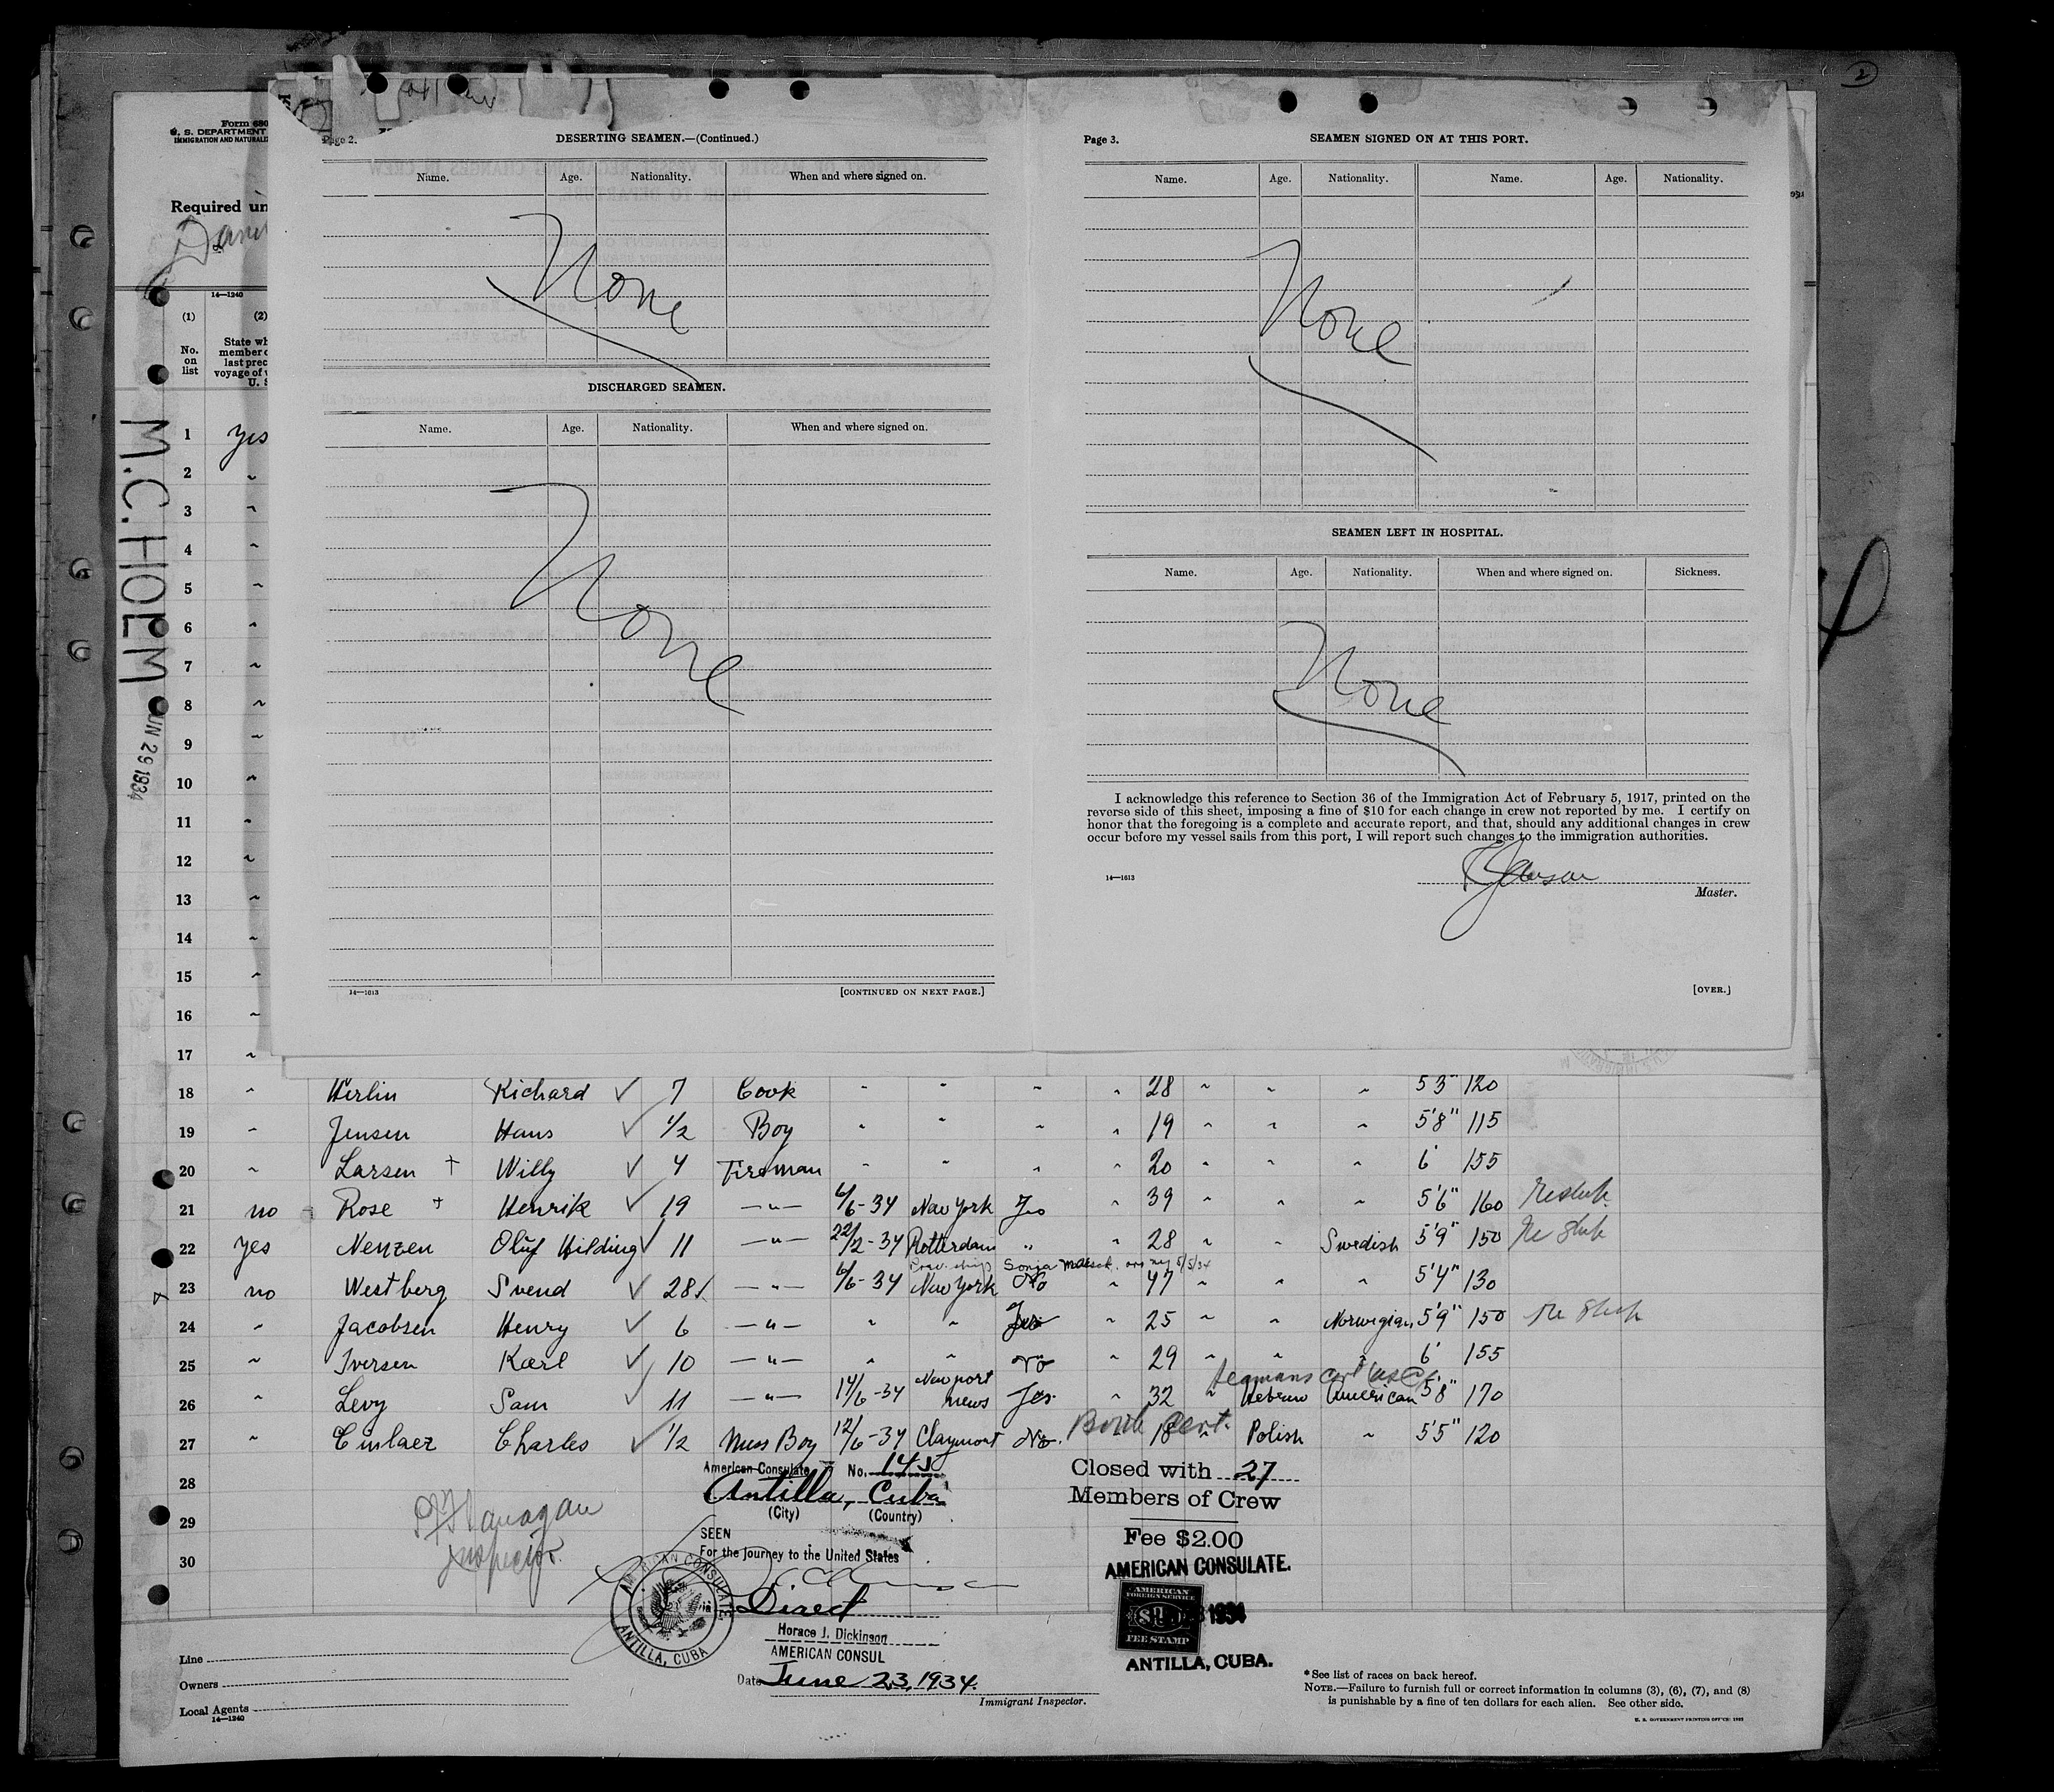 2
Form 680
U. S. DEPARTMENT
IMMIGRATION AND NATURALIZ
Required un
14—1240
(1) (2)
No. on list
State wh
member o
last prec
voyage of v
U. S
M.C. HOLM
JUN 29 1934
Page 2.
DESERTING SEAMEN.—(Continued.)
Name. Age. Nationality. When and where signed on.
None
DISCHARGED SEAMEN.
Name. Age. Nationality. When and where signed on.
None
14—1613
[CONTINUED ON NEXT PAGE.]
Page 3.
SEAMEN SIGNED ON AT THIS PORT.
Name. Age. Nationality. Name. Age. Nationality.
None
SEAMEN LEFT IN HOSPITAL.
Name. Age. Nationality. When and where signed on. Sickness.
None
I acknowledge this reference to Section 36 of the Immigration Act of February 5, 1917, printed on the
reverse side of this sheet, imposing a fine of $10 for each change in crew not reported by me. I certify on
honor that the foregoing is a complete and accurate report, and that, should any additional changes in crew
occur before my vessel sails from this port, I will report such changes to the immigration authorities.
14—1613
Master.
[OVER.]
1 yes
2 "
3 "
4 "
5 "
6 "
7 "
8 "
9 "
10 "
11 "
12 "
13 "
14 "
15 "
16 "
17 "
18 " Herlin Richard ✓ 7 Cook " " " " 28 " " " 5'3" 120
19 " Jensen Hans ✓ 1/2 Boy " " " " 19 " " " 5'8" 115
20 " Larsen † Willy ✓ 4 Fireman " " " " 20 " " " 6' 155
21 no Rose † Henrik ✓ 19 —"— 6/6-34 New York Yes " 39 " " " 5'6" 160
22 yes Nenzen Oluf Hilding ✓ 11 —"— 22/2-34 Rotterdam " " 28 " " Swedish 5'9" 150
Prev. ship Sonja Maersk 5/5/34
23 no Westberg Svend ✓ 28 —"— 6/6-34 New York No " 47 " " " 5'4" 130
24 " Jacobsen Henry ✓ 6 —"— " " Yes " 25 " " Norwegian 5'9" 150
25 " Iversen Karl ✓ 10 —"— " " No " 29 " " " 6' 155
Seamans cert
26 " Levy Sam ✓ 11 —"— 14/6-34 Newport news Yes " 32 " Hebrew American 5'8" 170
Birth Cert.
27 " Charles ✓ 1/2 Mess Boy 12/6-34 Claymont No 18 " Polish " 5'5" 120
28
29
30
Inspector.
American Consulate No. 145
Antilla, Cuba
(City) (Country)
SEEN
For the journey to the United States
via Direct
Horace J. Dickinson
AMERICAN CONSUL
Date June 23, 1934.
Immigrant Inspector.
AMERICAN CONSULATE.
ANTILLA, CUBA
Closed with 27
Members of Crew
Fee $2.00
AMERICAN CONSULATE.
AMERICAN
FOREIGN SERVICE
FEE STAMP
1934
ANTILLA, CUBA.
Line
Owners
Local Agents
14—1240
*See list of races on back hereof.
NOTE.—Failure to furnish full or correct information in columns (3), (6), (7), and (8)
is punishable by a fine of ten dollars for each alien. See other side.
U. S. GOVERNMENT PRINTING OFFICE: 1932